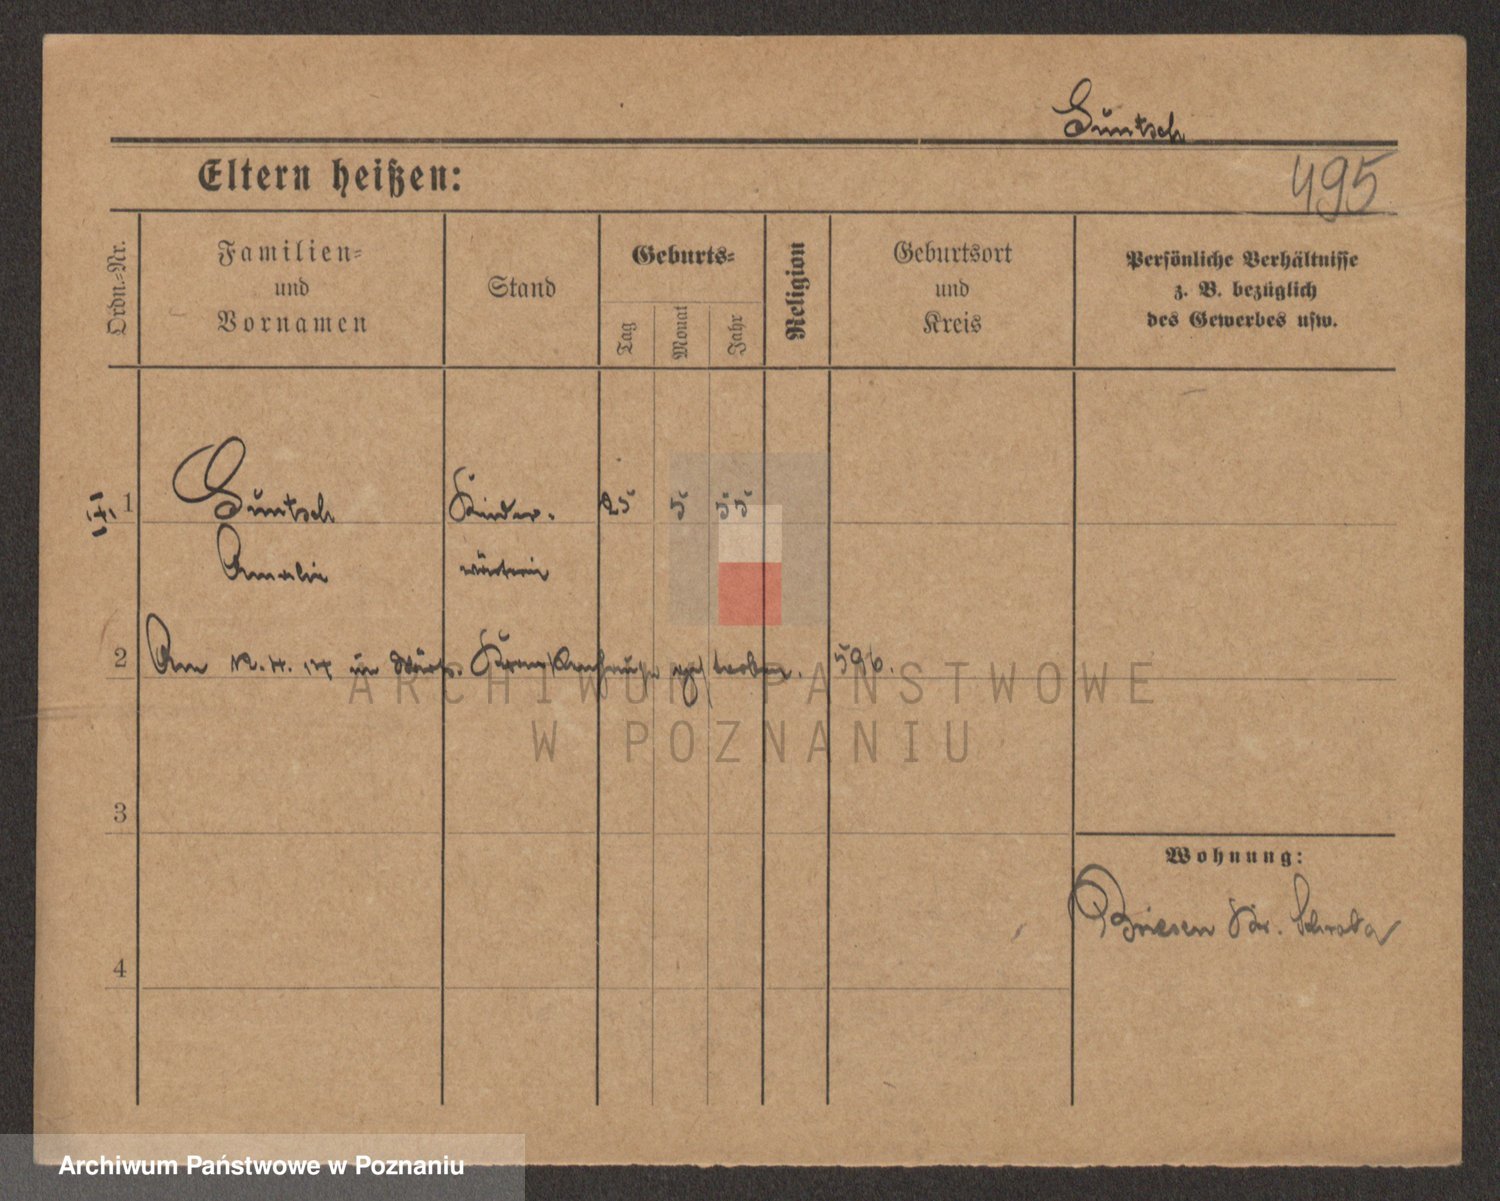 Güntsch
Eltern heißen:
495
Ordn.=Nr.
Familien=
und
Vornamen
Stand
Geburts=
Tag
Monat
Jahr
Religion
Geburtsort
und
Kreis
Persönliche Verhältnisse
z. B. bezüglich
des Gewerbes usw.
1 Güntsch Kinder- 25 5 55
Amalie wärterin
2 Am 12. 4. 14 im Krankenhause gestorben. 596.
3
Wohnung:
Briesen Kr. Schroda
4
ARCHIWUM PAŃSTWOWE
W POZNANIU
Archiwum Państwowe w Poznaniu